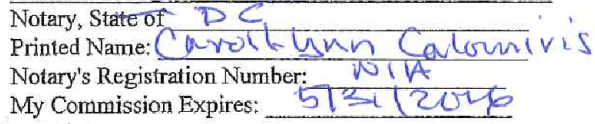 Notary, State of DC
Printed Name: Carol Lynn Calomiris
Notary's Registration Number: N/A
My Commission Expires: 5/31/2026